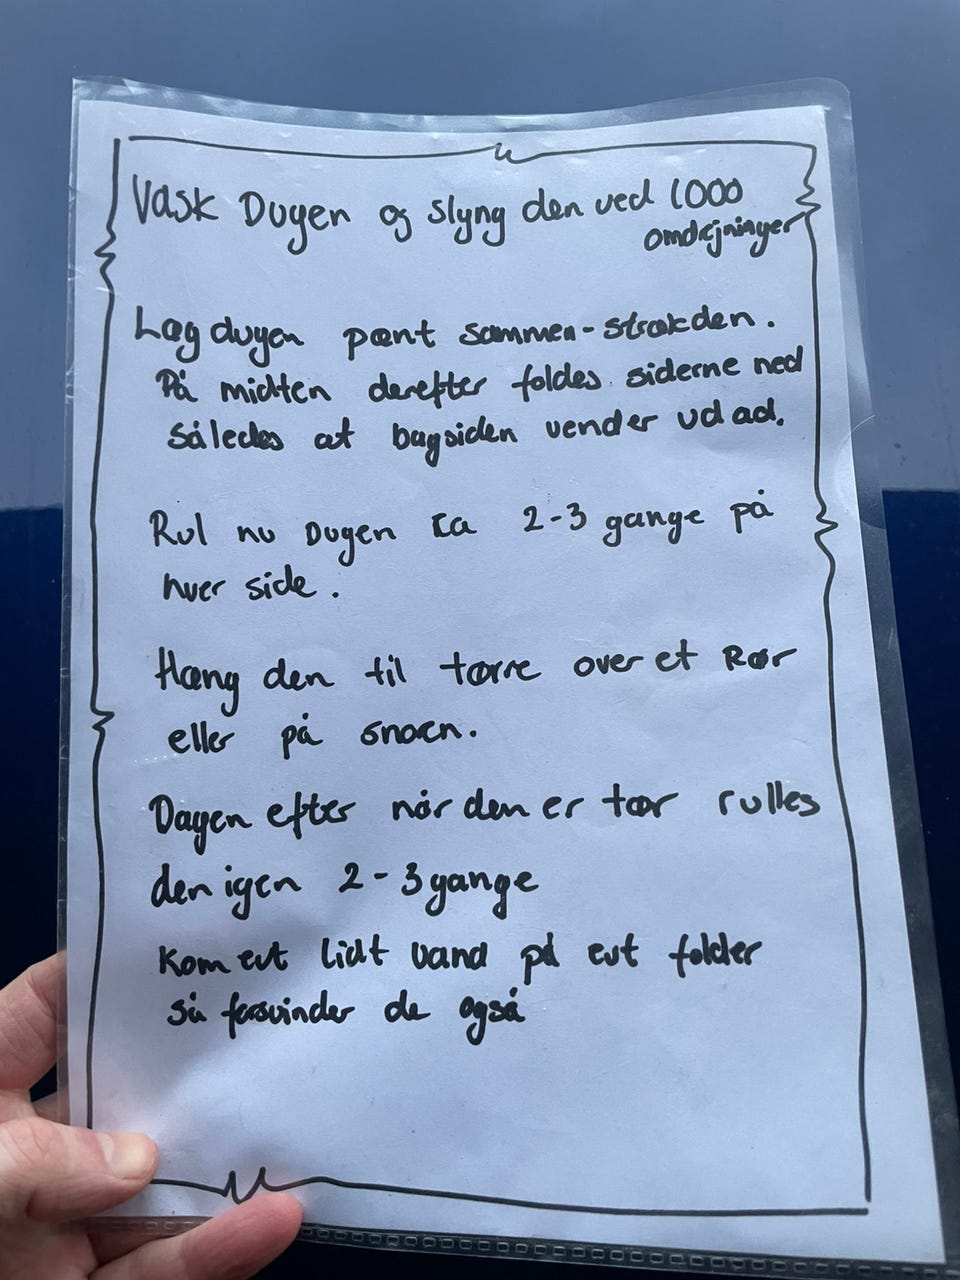 Vask Dugen og slyng den ved 1000
omdrejninger
Læg dugen pænt sammen - strækden.
På midten derefter foldes siderne ned
således at bagsiden vender udad.
Rul nu Dugen ca 2-3 gange på
hver side.
Hæng den til tørre over et Rør
eller på snoen.
Dagen efter når den er tør rulles
den igen 2-3 gange
Kom evt lidt vand på evt folder
så forsvinder de også